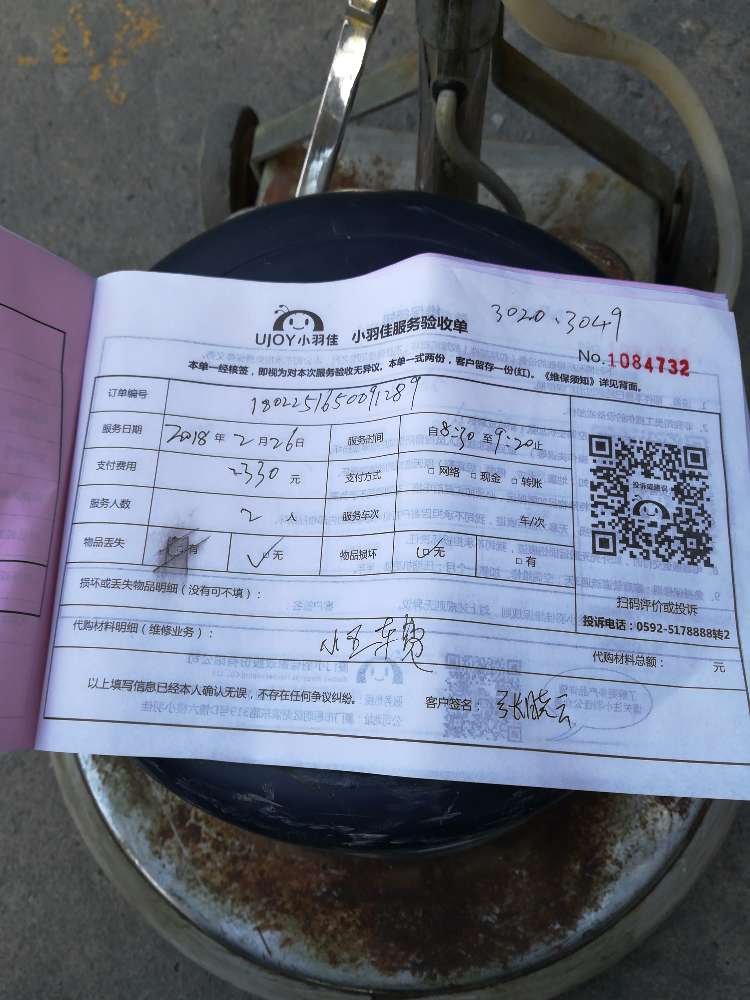 UJOY小羽佳 小羽佳服务验收单 3020、3049
No.1084732
本单一经核签，即视为对本次服务验收无异议，本单一式两份，客户留存一份(红)。《维保须知》详见背面。
订单编号 1802251650091289
服务日期 2018年2月26日 服务时间 自8:30至9:20止
支付费用 2330元 支付方式 □网络 □现金 □转账
服务人数 2人 服务车次 车/次
物品丢失 □有 □无 物品损坏 □无 □有
投诉或建议
扫码评价或投诉
投诉电话：0592-5178888转2
损坏或丢失物品明细（没有可不填）：
代购材料明细（维修业务）： 代购材料总额： 元
以上填写信息已经本人确认无误，不存在任何争议纠纷。 客户签名： 张晓云